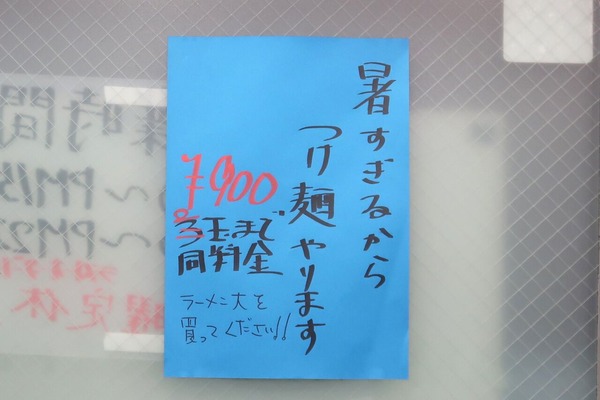 暑すぎるから
つけ麺やります
¥900
3玉まで
同料金
ラーメン大を
買ってください!!
業時間
PM15
PM2
定休